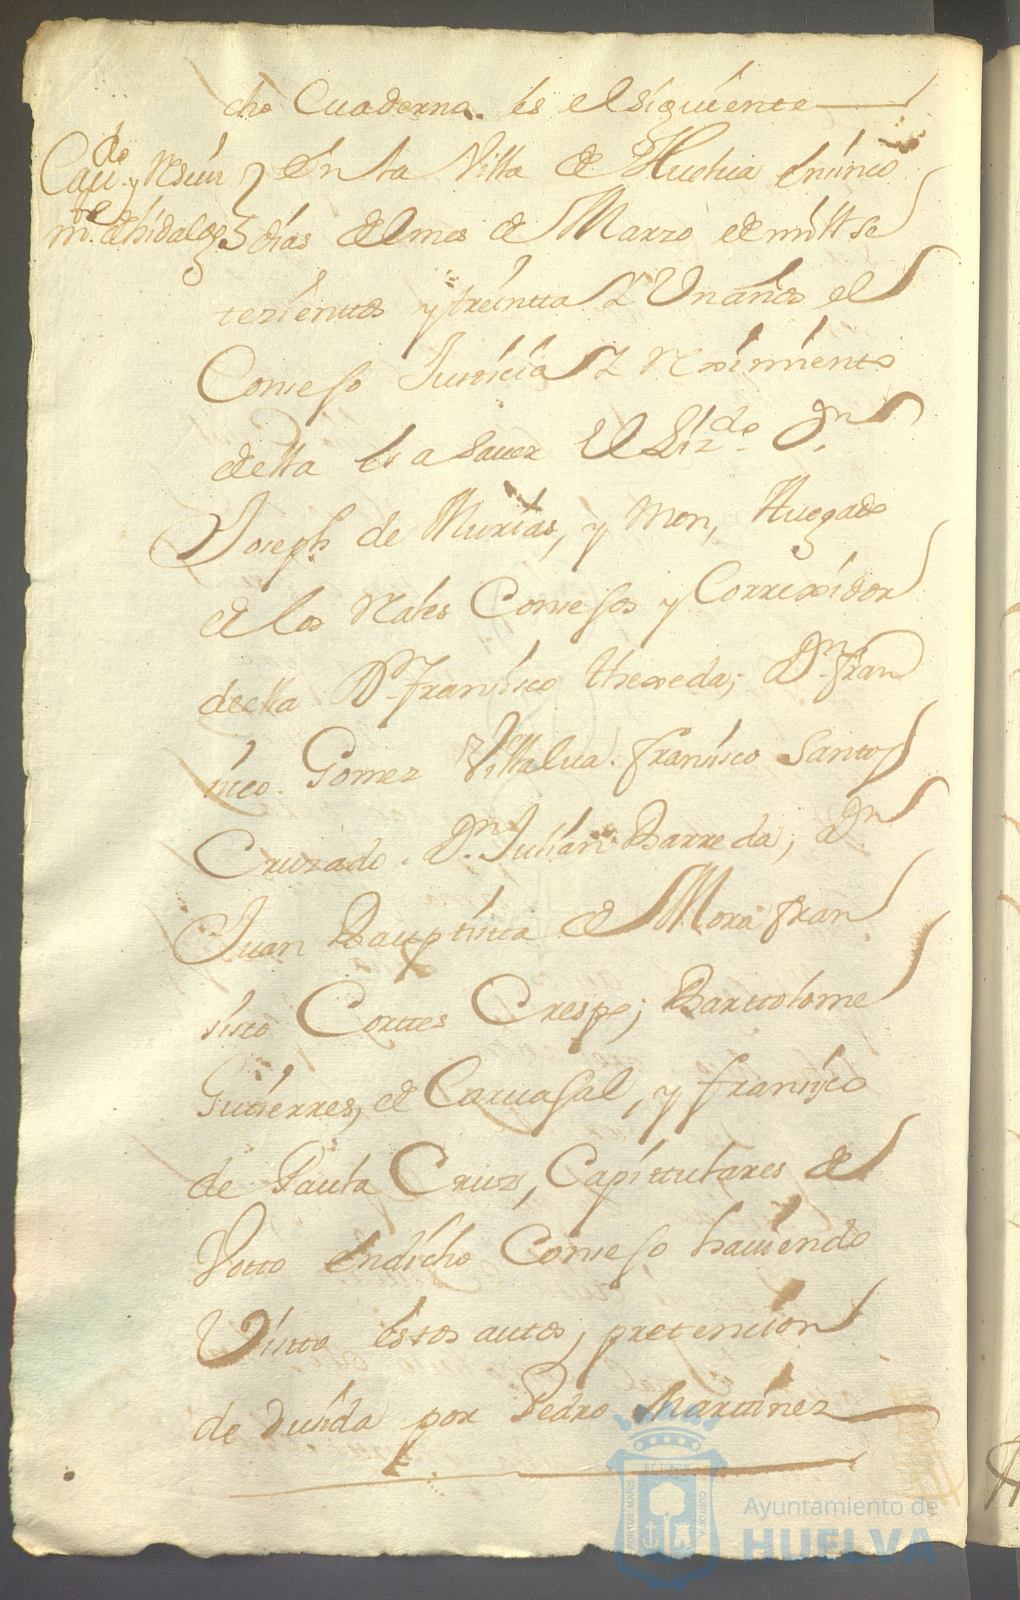 cho Cuaderno. es el siguiente
Cau.do y Resiui
m.to de hidalgo
En la Villa de Huelua en sinco
dias del mes de Marzo de mill se
tezientos y treintta Y Vn años el
Consejo Justicia Y Reximiento
della Es a Sauer El Lizdo. Dn.
Joseph de Murias, y Mon, Auogado
de los Rales Consejos y Correxidor
della Dn. Fransisco thexeda; Dn. Fran
sisco. Gomez Villalua. Fransisco Santos
Cruzado. Dn. Julian Barreda; Dn
Juan Bauptista de Mora Fran
sisco Corttes Crespo; Barttolome
Gutierres, de Caruajal, y Fransisco
de Paula Cruz, Capittulares de
Votto En dicho Consejo hauiendo
Visto estos autos, pretencion
de dusida por Pedro Marttinez
PORTUS MARIS
ET TERRAE
CUSTODIA
Ayuntamiento de
HUELVA